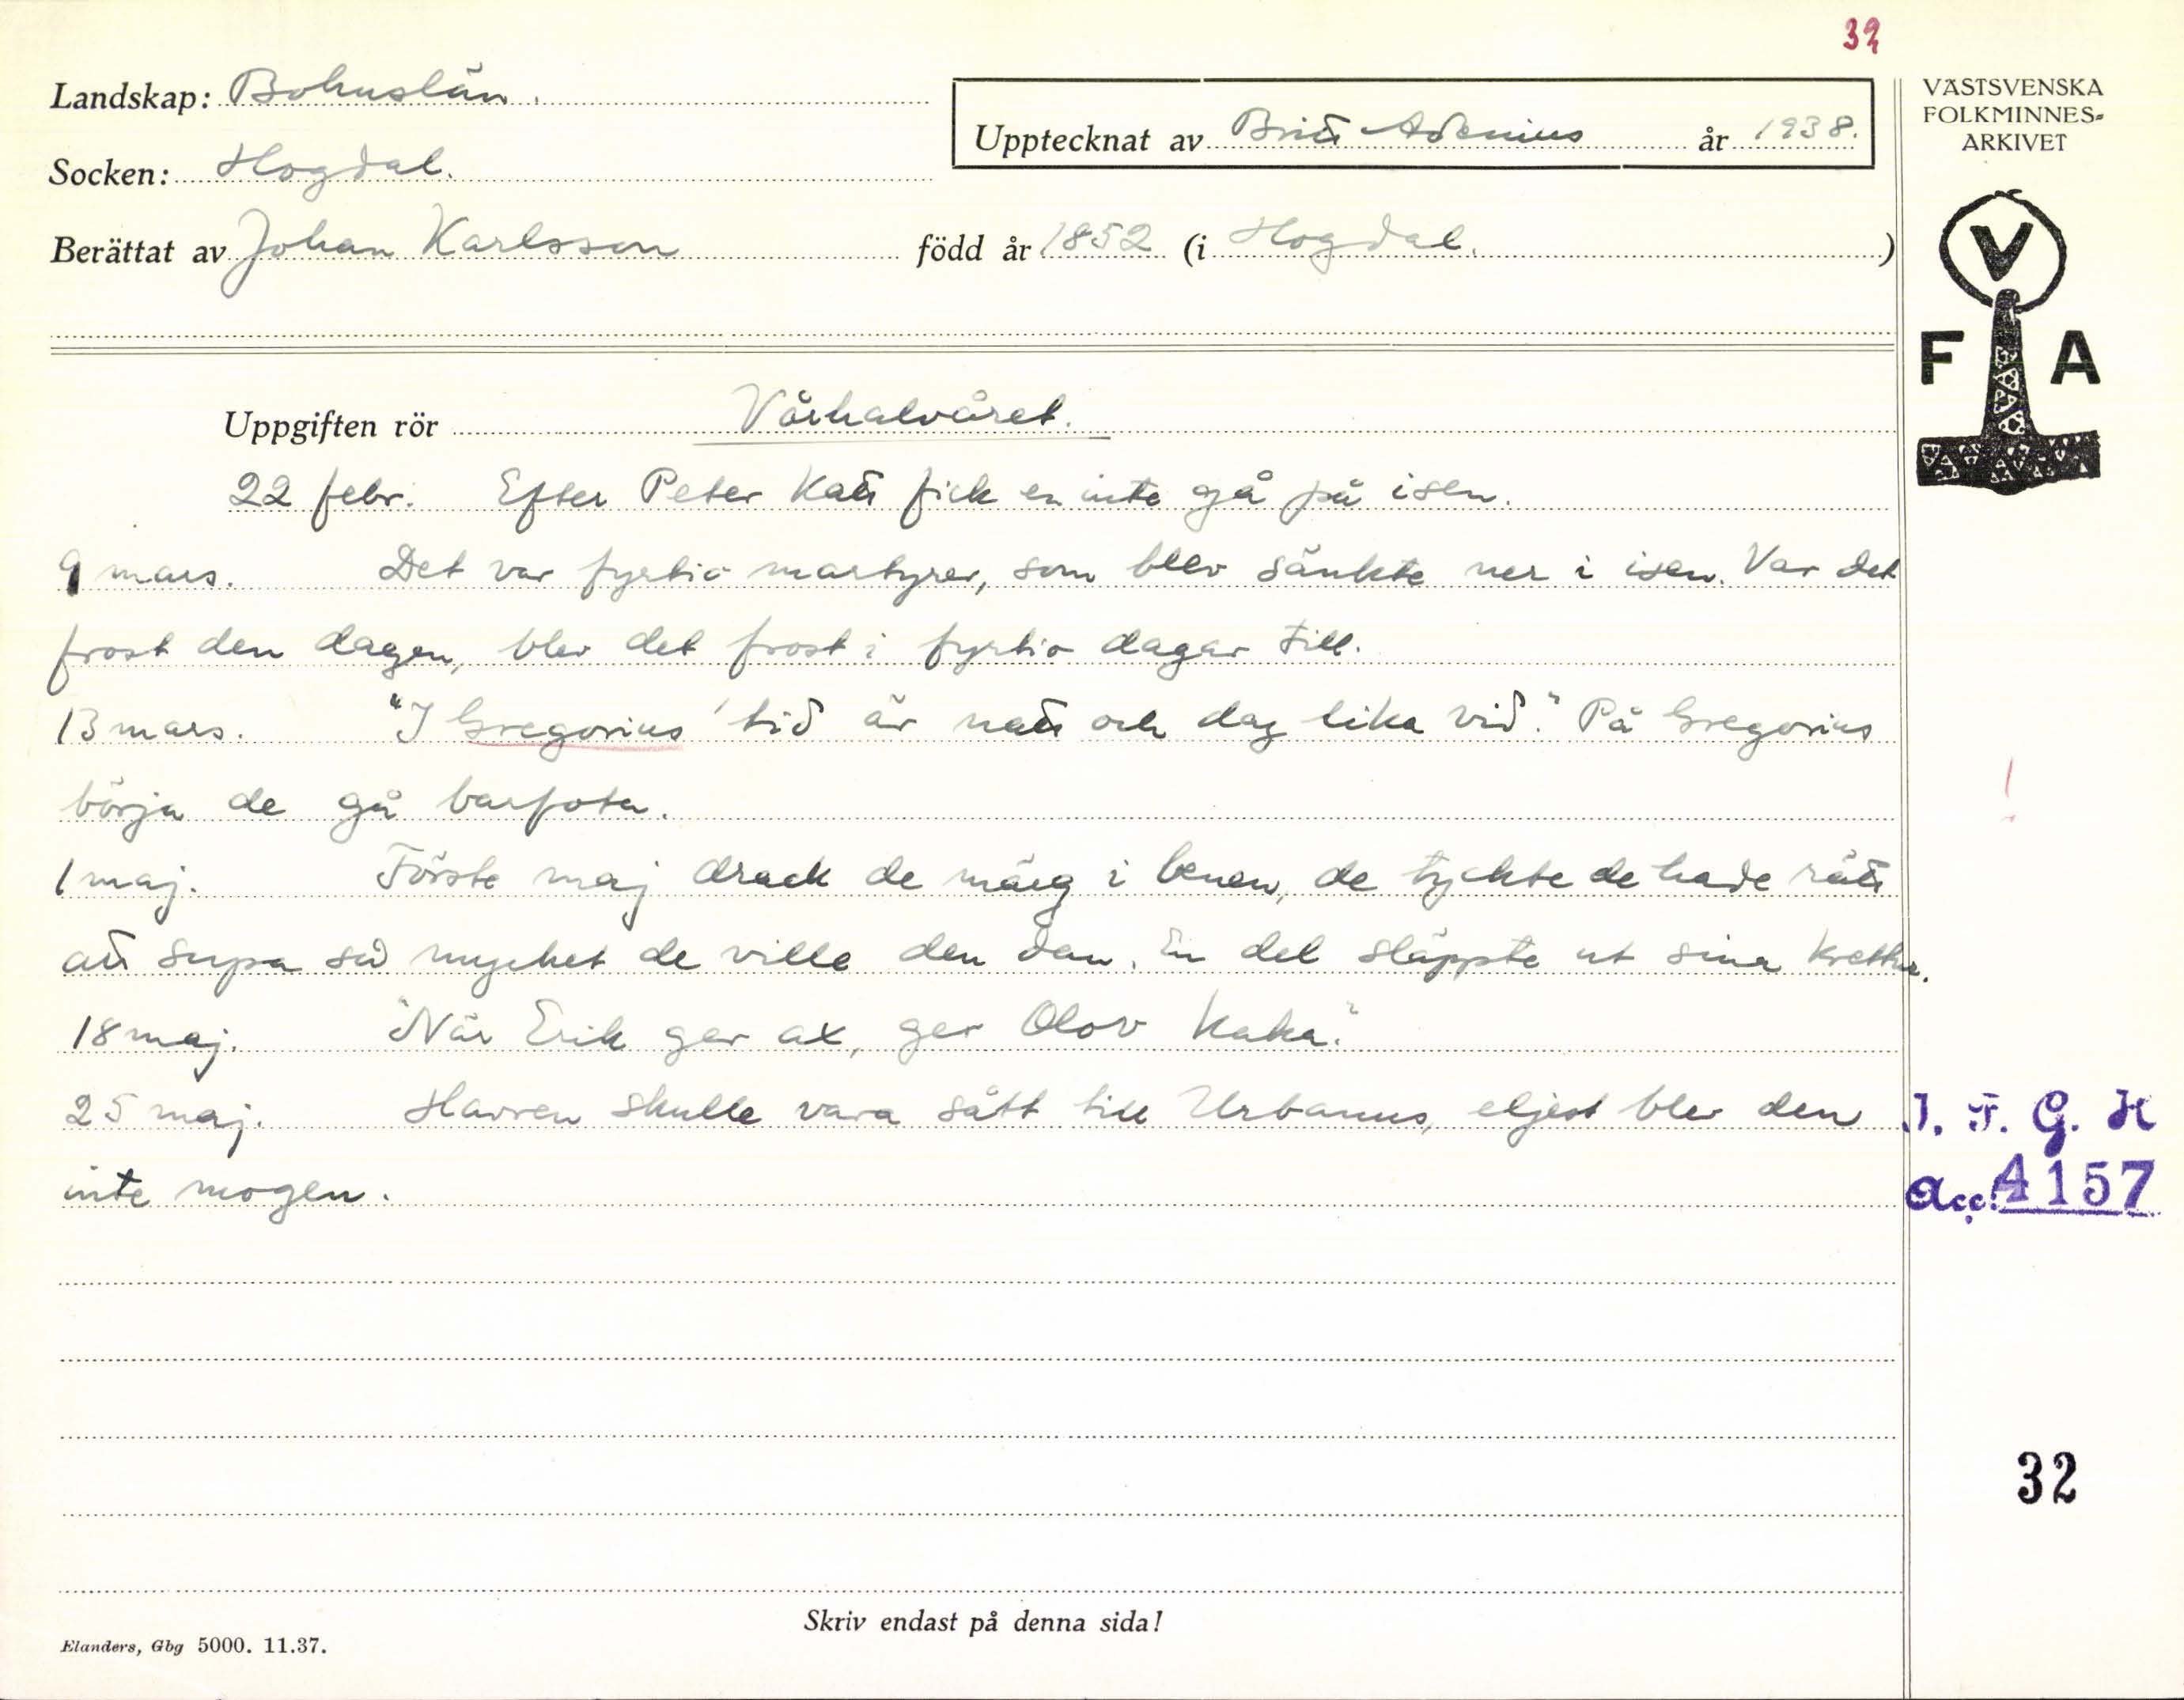 32
Landskap: Bohuslän.
Upptecknat av Britt Adenius år 1938.
Socken: Hogdal.
Berättat av Johan Karlsson född år 1852 (i Hogdal.)
VÄSTSVENSKA
FOLKMINNES-
ARKIVET
V
F A
Uppgiften rör Vårhalvåret.
22 febr. Efter Peter Katt fick en inte gå på isen.
9 mars. Det var fyrtio martyrer, som blev sänkte ner i isen. Var det
frost den dagen, blev det frost i fyrtio dagar till.
13 mars. "I Gregorius' tid är natt och dag lika vid." På Gregorius
börja de gå barfota.
!
1 maj. Förste maj drack de märg i benen, de tyckte de hade rätt
att supa så mycket de ville den dan. En del släppte ut sina krettur.
18 maj. "När Erik ger ax, ger Olov kaka."
25 maj. Havren skulle vara sått till Urbanus, eljest blev den
inte mogen.
I. F. G. H
Acc. 4157
32
Skriv endast på denna sida!
Elanders, Gbg 5000. 11.37.